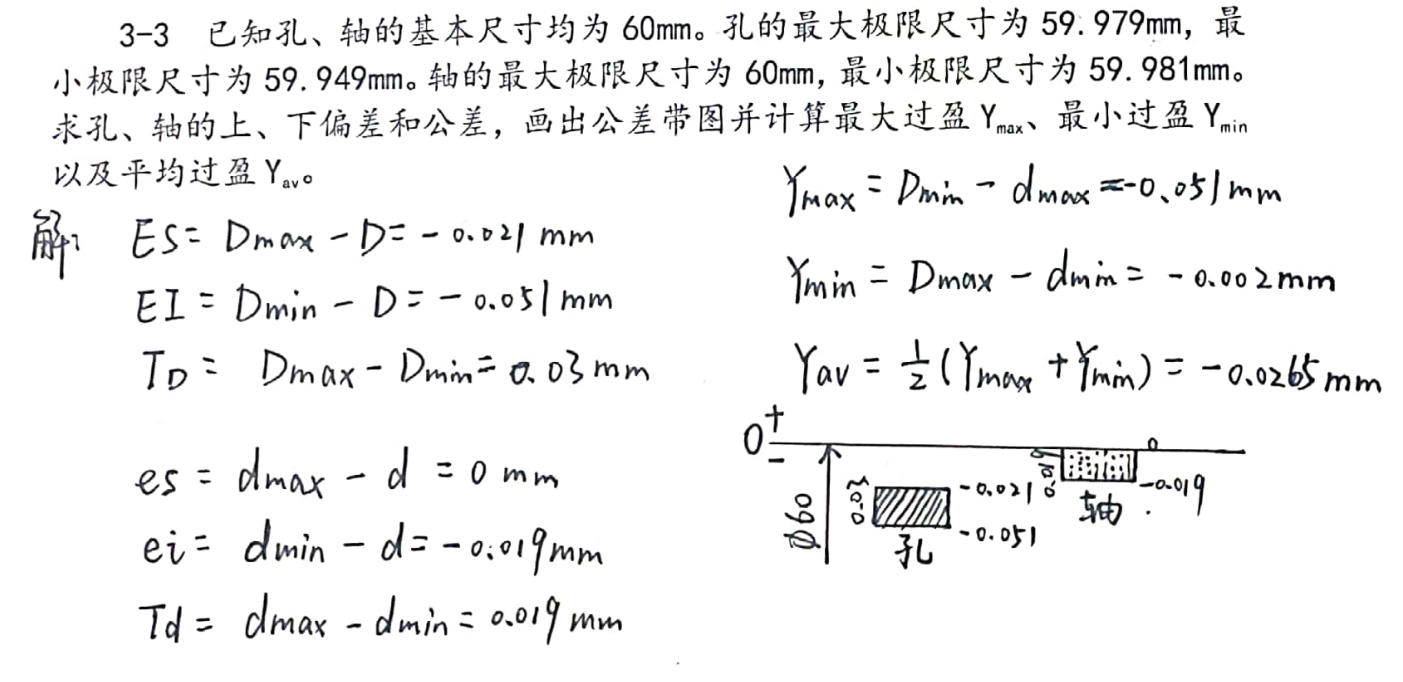 3-3 已知孔、轴的基本尺寸均为 60mm。孔的最大极限尺寸为 59.979mm，最
小极限尺寸为 59.949mm。轴的最大极限尺寸为 60mm，最小极限尺寸为 59.981mm。
求孔、轴的上、下偏差和公差，画出公差带图并计算最大过盈 Ymax、最小过盈 Ymin
以及平均过盈 Yav。
解：
ES = Dmax - D = - 0.021 mm
EI = Dmin - D = - 0.051 mm
TD = Dmax - Dmin = 0.03 mm
es = dmax - d = 0 mm
ei = dmin - d = - 0.019 mm
Td = dmax - dmin = 0.019 mm
Ymax = Dmin - dmax = -0.051 mm
Ymin = Dmax - dmin = - 0.002 mm
Yav = 1/2 (Ymax + Ymin) = - 0.0265 mm
0 + -
φ60
0.03
-0.021
-0.051
孔
0.019
0
-0.019
轴